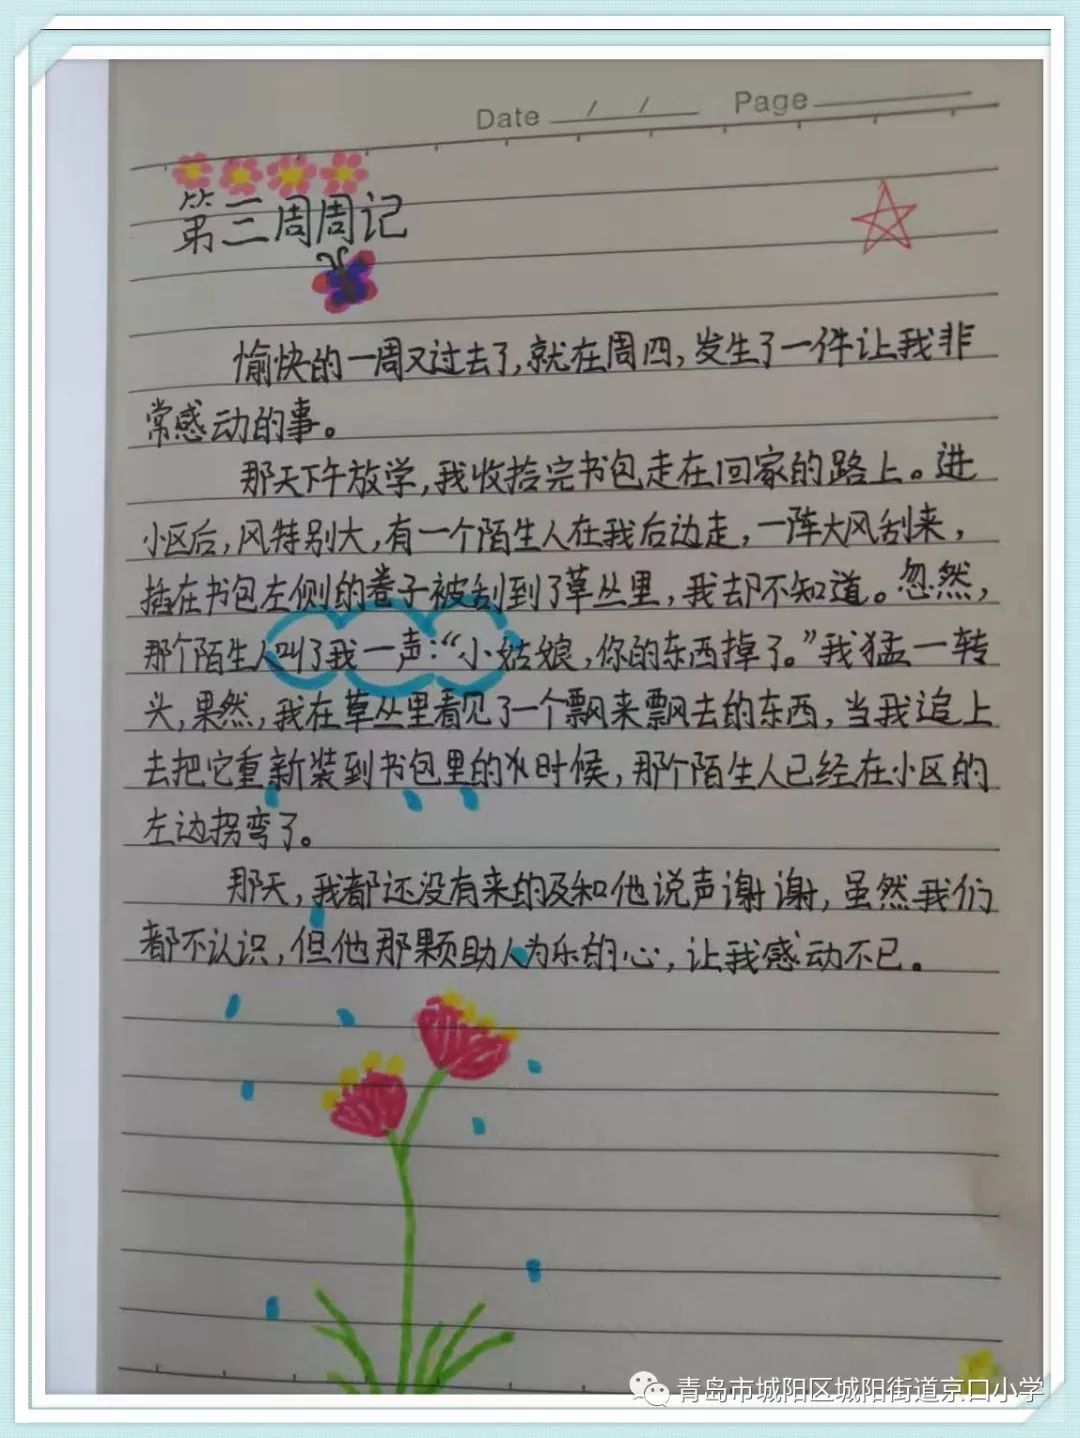 Date / / Page
第三周周记
愉快的一周又过去了,就在周四,发生了一件让我非
常感动的事。
那天下午放学,我收拾完书包走在回家的路上。进
小区后,风特别大,有一个陌生人在我后边走,一阵大风刮来,
插在书包左侧的卷子被刮到了草丛里,我却不知道。忽然,
那个陌生人叫了我一声:“小姑娘,你的东西掉了。”我猛一转
头,果然,我在草丛里看见了一个飘来飘去的东西,当我追上
去把它重新装到书包里的时候,那个陌生人已经在小区的
左边拐弯了。
那天,我都还没有来的及和他说声谢谢,虽然我们
都不认识,但他那颗助人为乐的心,让我感动不已。
青岛市城阳区城阳街道京口小学